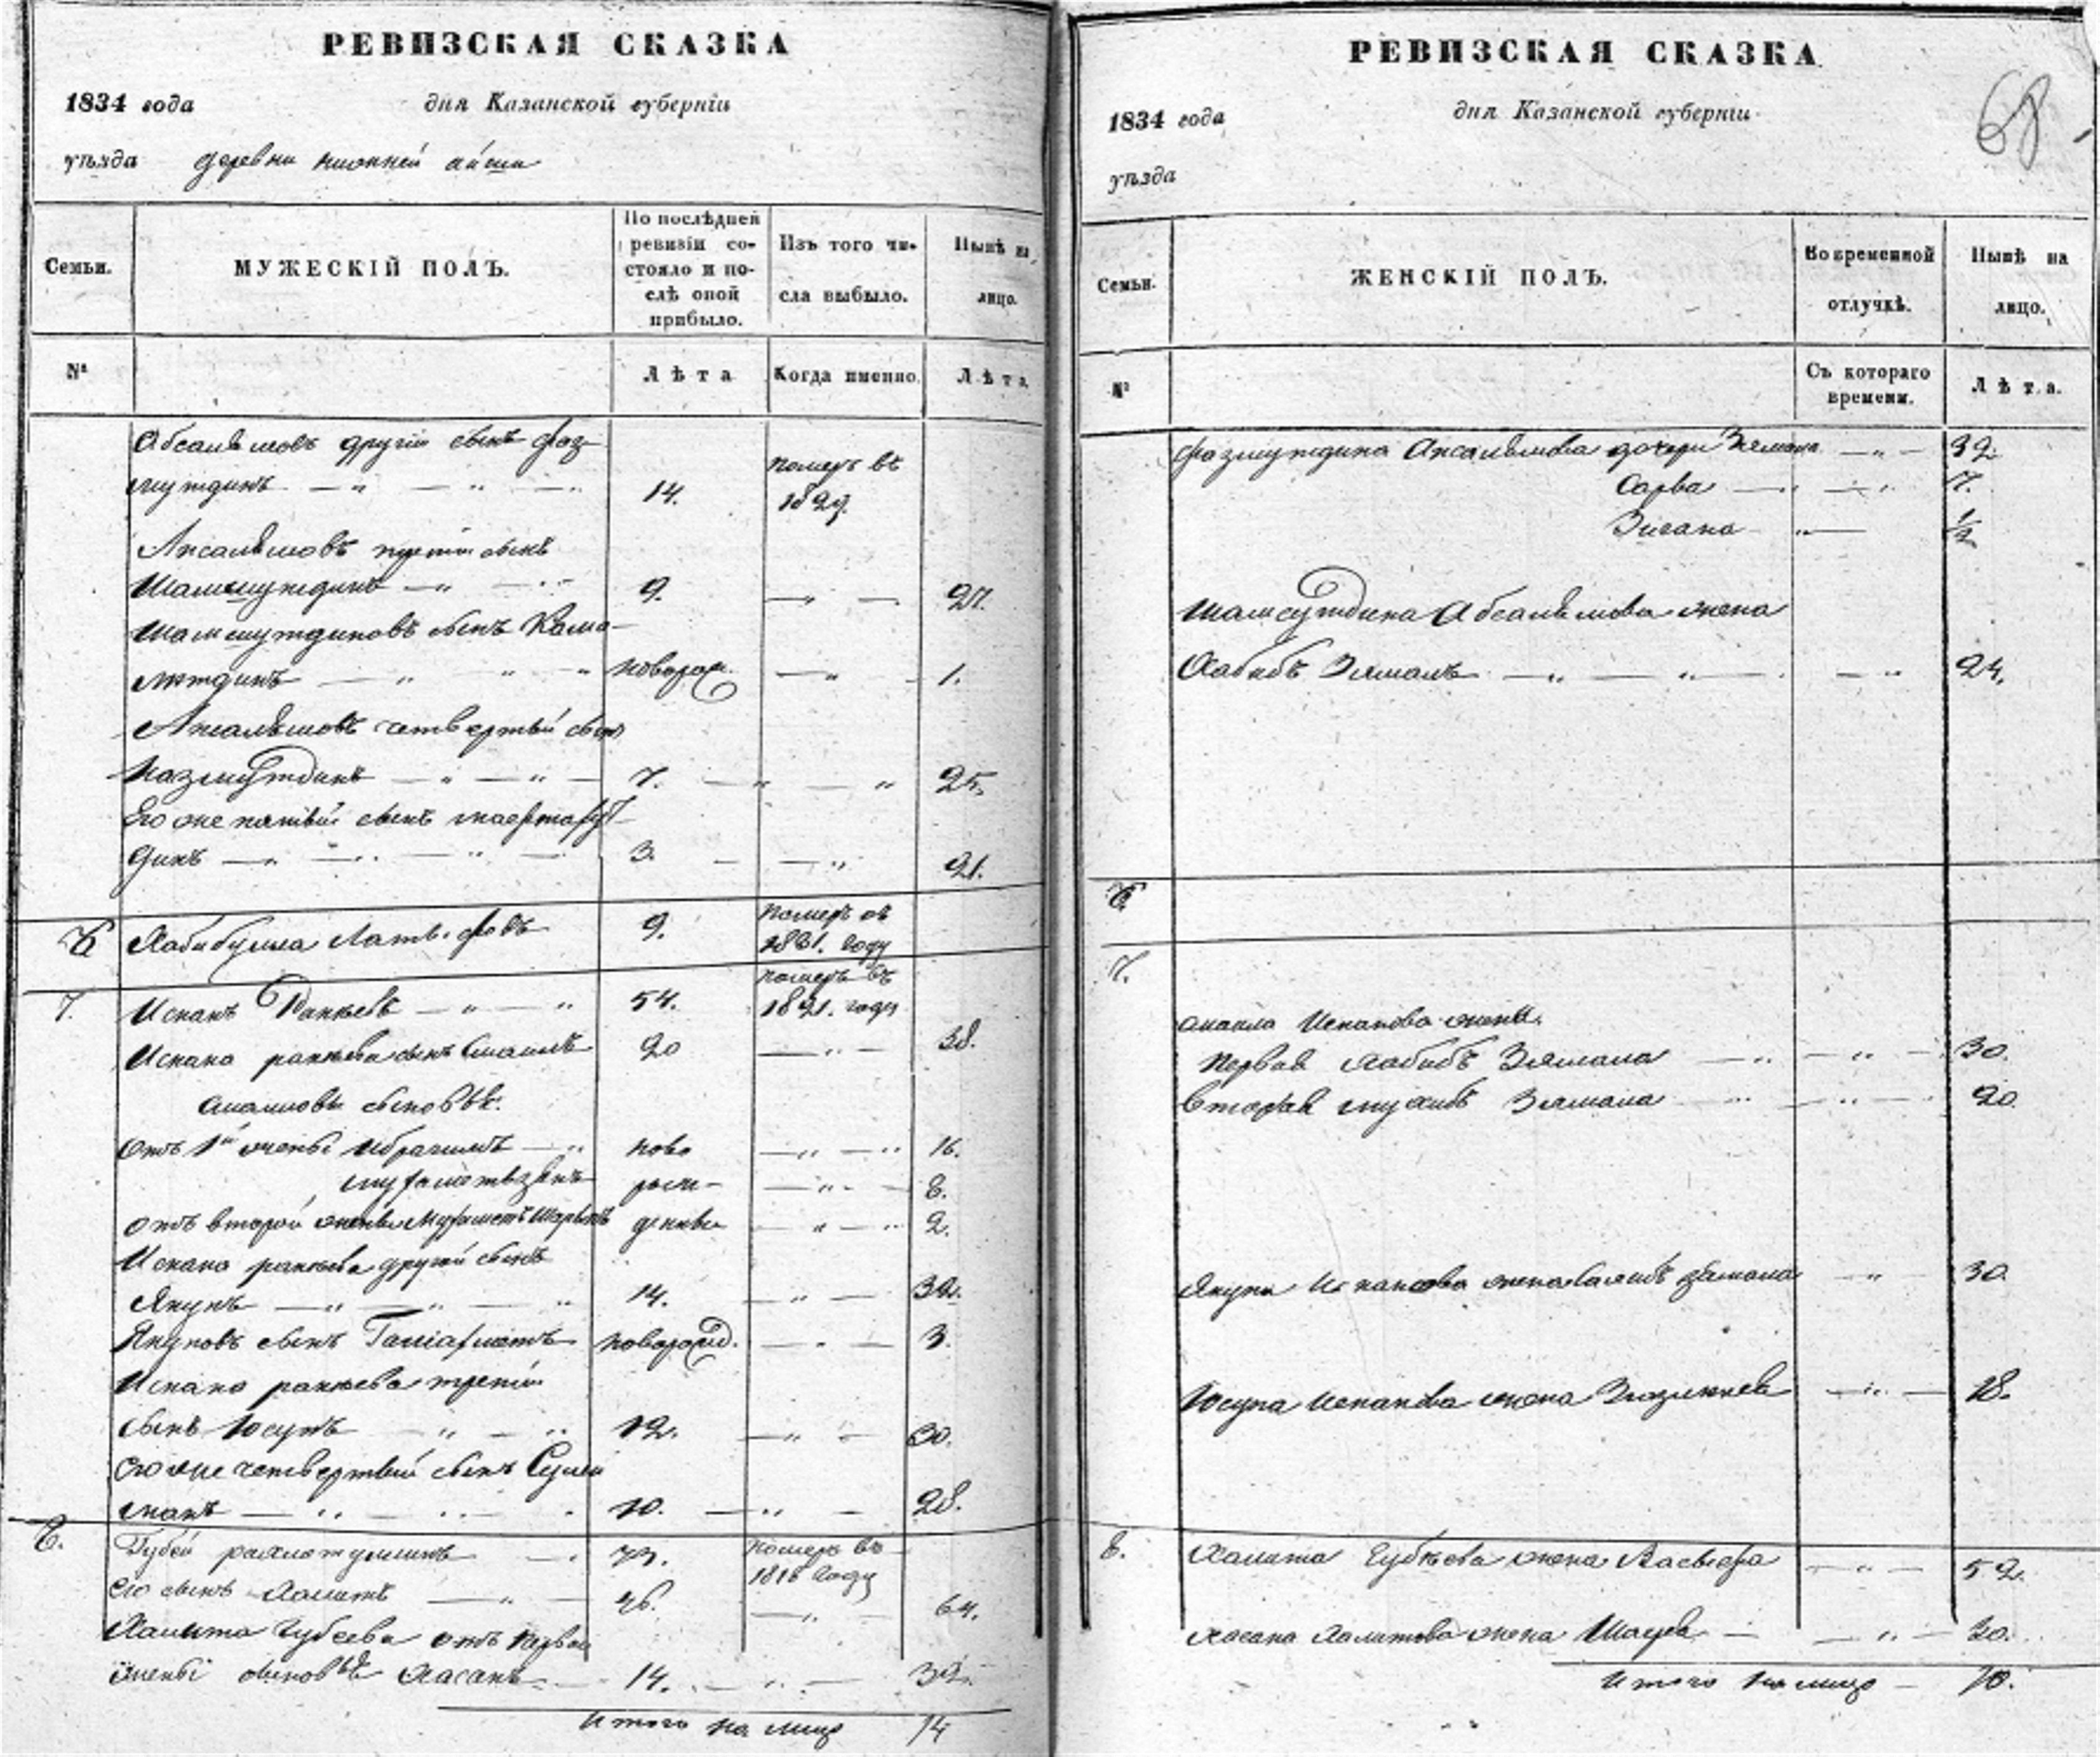 РЕВИЗСКАЯ СКАЗКА
1834 года дня Казанской губерніи
уѣзда деревни нижней аиши
Семьи. МУЖЕСКІЙ ПОЛЪ. По послѣдней ревизіи состояло и послѣ оной прибыло. Изъ того числа выбыло. Нынѣ на лицо.
№ Лѣта Когда именно. Лѣта.
Абсалямовъ другій сынъ Фаз-
мутдинъ 14. померъ въ 1829.
Апсалямовъ третіи сынъ
Шамсутдинъ 9. 27.
Шамсутдиновъ сынъ Кама-
лютдинъ новорож. 1.
Апсалямовъ четвертый сынъ
Назмутдинъ 7. 25.
Его же пятый сынъ
динъ 3. 21.
6 Хабибулла Латыфовъ 9. Померъ въ 1831. году
7. Испанъ Ранѣевъ 54. померъ въ 1821. году
Испана ранѣева сынъ Смаилъ 20 38.
Смаиловы сыновья.
Отъ 1й жены Ибрагимъ ново 16.
рож- 8.
отъ второй жены денны 2.
Испана ранѣева другой сынъ
Якупъ 14. 32.
Якуповъ сынъ новорожд. 3.
Испана ранѣева третіи
сынъ Юсупъ 12. 30.
Его же четвертый сынъ Сулей
манъ 10. 28.
8. Губей рахматуллинъ 73. померъ въ 1818 году
Его сынъ Халитъ 46. 64.
Халита Губеева отъ первой
жены сыновья Хасанъ 14. 32.
Итого на лицо 14
РЕВИЗСКАЯ СКАЗКА
68
1834 года дня Казанской губерніи
уѣзда
Семьи. ЖЕНСКІЙ ПОЛЪ. Во временной отлучкѣ. Нынѣ на лицо.
№ Съ котораго времени. Лѣта.
Фазмутдина Апсалямова дочери 32.
Сарва 7.
Зигана 1/2
Шамсутдина Абсалямова жена
Хабибъ Зямалъ 24.
6.
7.
смаила Испанова жены.
Первая Хабибъ Зямала 30.
Вторая Зямала 20.
Якупа Испанова жена зямала 30.
Юсупа Испанова жена 18.
8. Халита Губѣева жена 52.
Хасана Халитова жена 30.
Итого на лицо 10.